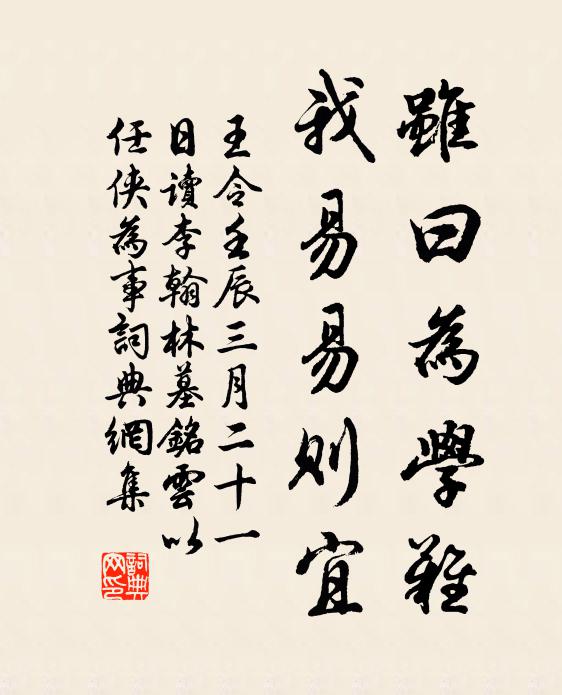 雖曰為學難
我易易則宜
王令壬辰三月二十一
日讀李翰林墓銘雲以
任俠為事詞典網集
詞典網印